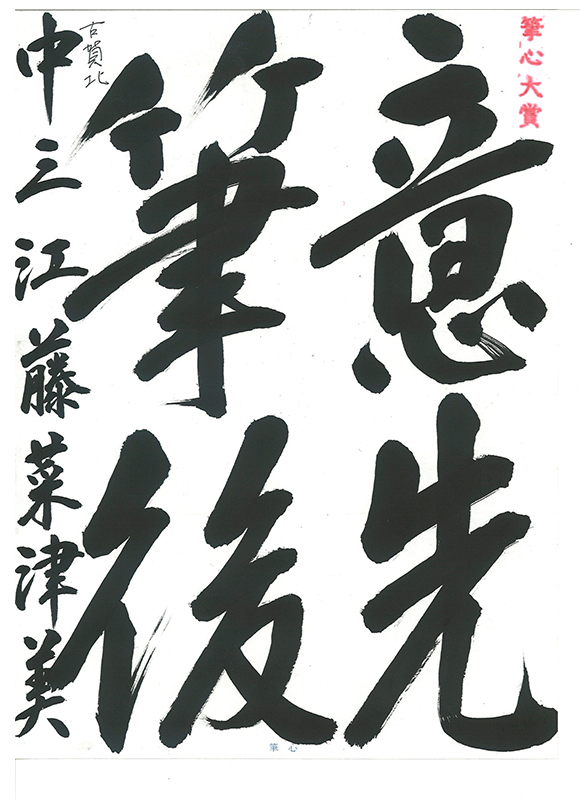 筆心大賞
意先
筆後
古賀北
中三江藤菜津美
筆心